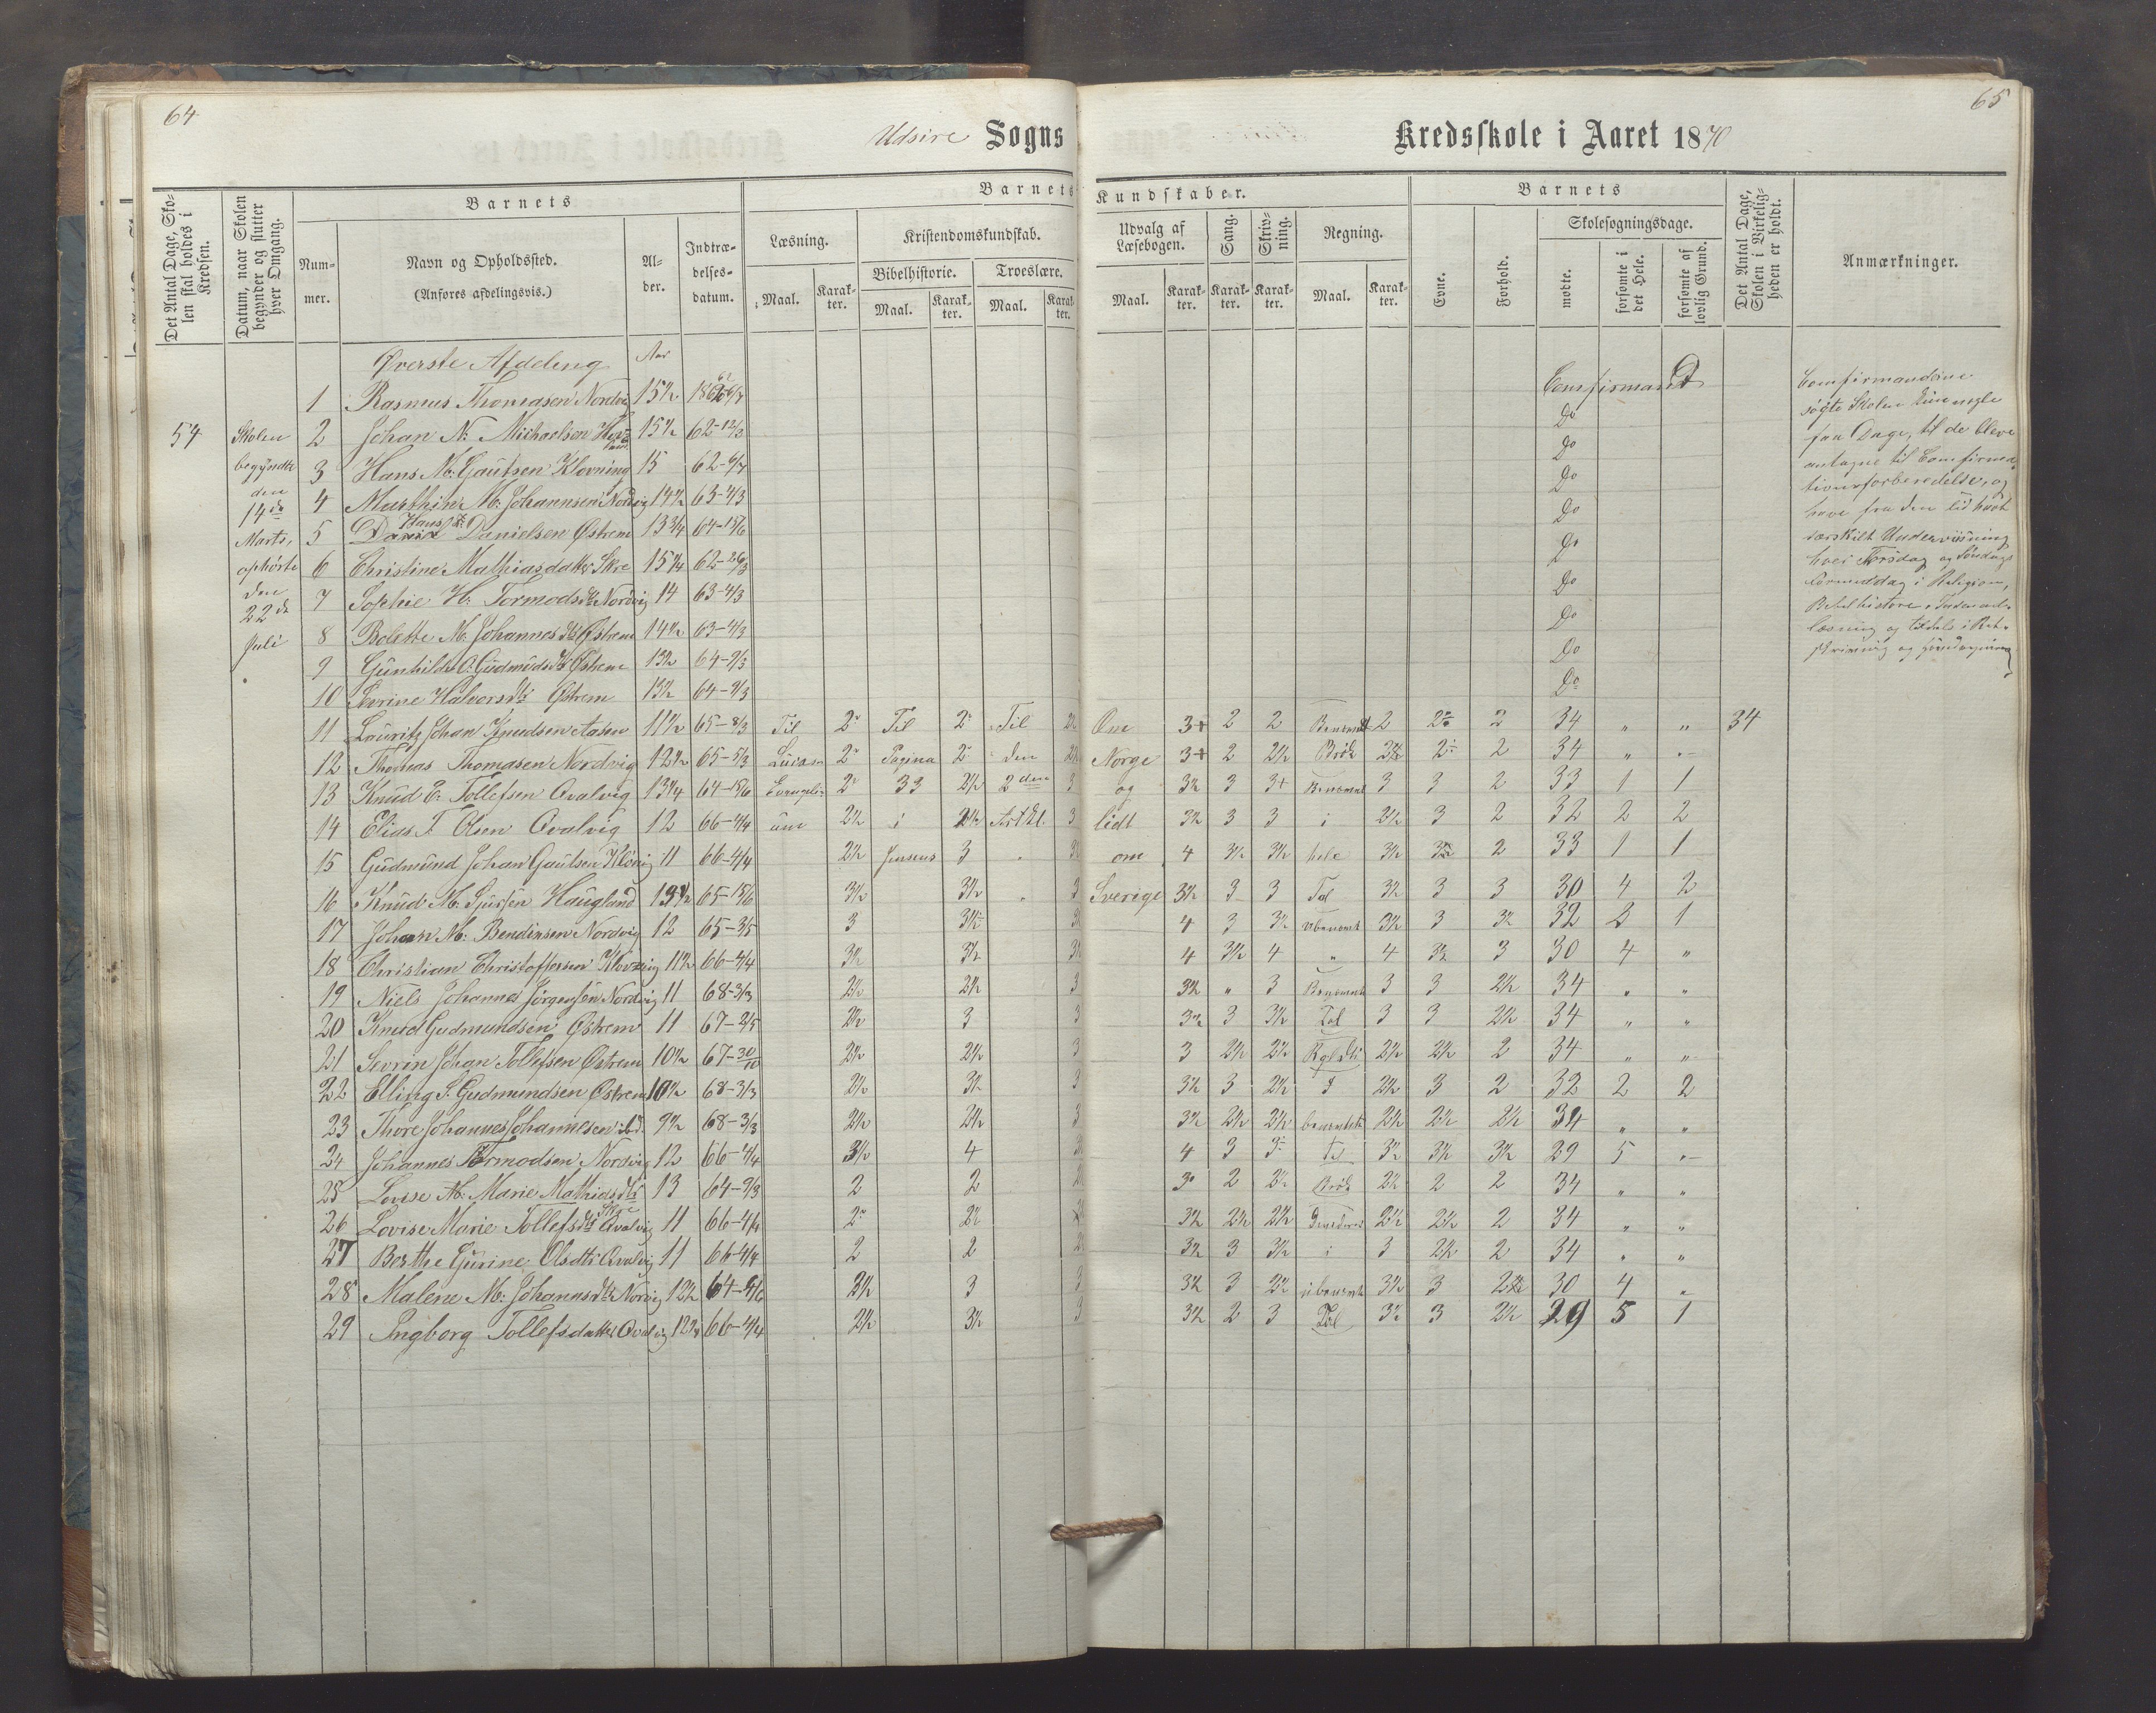 64
65
Udsire Sogns
Kredsskole i Aaret 1870
Det Antal Dage, Skolen skal holdes i Kredsen.
Datum, naar Skolen begynder og slutter hver Omgang.
Barnets
Nummer.
Navn og Opholdssted.
(Anføres afdelingsvis.)
Alder.
Indtrædelsesdatum.
Barnets Kundskaber.
Læsning.
Kristendomskundskab.
Bibelhistorie.
Troeslære.
Maal. Karakter. Maal. Karakter. Maal. Karakter.
Udvalg af Læsebogen.
Sang.
Skrivning.
Regning.
Maal. Karakter. Karakter. Karakter. Maal. Karakter.
Barnets
Evne.
Forhold.
Skolesøgningsdage.
mødte.
forsømte i det Hele.
forsømte af lovlig Grund.
Det Antal Dage, Skolen i Virkeligheden er holdt.
Anmærkninger.
54
Skolen
begyndte
den
14de
Marts,
ophørte
den
22de
Juli
Øverste Afdeling Aar
1 Rasmus Thomasen Nordvig 15½ Comfirmand
2 Johan N. Michaelsen 15½ 62-12/3 Do
3 Hans M. Gautsen Klovning 15 62- Do
4 Marthin M. Johannsen Nordvig 14½ 63-4/3 Do
5 Hans Danielsen Østrem 13¾ 64-15/6 Do
6 Christine Mathiasdatter Skre 15¼ 62-26/3 Do
7 Sophie H. Tormodsdtr Nordvig 14 63-4/3 Do
8 Bolette M. Johannesdtr Østrem 14½ 63-4/3 Do
9 Gunhilde O. Gudmudsdtr Østrem 13½ 64-9/3 Do
10 Serine Halvorsdtr Østrem 13½ 64-9/3 Do
11 Lauritz Johan Knudsen Aasen 11½ 65-8/3 Til 2 Til 2 Til Om 3+ 2 2 2 2 2 34 " " 34
12 Thomas Thomasen Nordvig 12½ 65-5/3 Lucas 2 Pagina 2 den Norge 3+ 2 2½ Brök 2½ 2 2 34 "
13 Knud E. Tollefsen Qvalvig 13¼ 64-15/6 Evangeli- 2 33 2½ 2den 3 og 3½ 3 3+ 3 3 2 33 1 1
14 Elias T. Olsen Qvalvig 12 66-4/4 um 2½ i 2½ Artikl. 3 lidt 3½ 3 3 i 2½ 3 2 32 2 2
15 Gudmund Johan Gautsen 11 66-4/4 2½ Jensens 3 om 4 3½ 3½ hele 3½ 3½ 2 33 1 1
16 Knud M. Sjursen Haugland 13½ 65-15/6 3½ 3½ 3 Sverige 3½ 3 3 Tal 3½ 3 3 30 4 2
17 Johan M. Bendixsen Nordvig 12 65-3/5 3 3½ 4 3 3½ ubenevnte 3½ 3 3½ 32 2 1
18 Christian Christoffersen 11½ 66-4/4 3½ 3½ 4 3½ 4 " 4 3½ 3 30 4 "
19 Niels Johannes Jörgensen Nordvig 11 68-3/3 2½ 2½ 3 3½ " 3 Benevnte 3 3 2½ 34 " "
20 Knud Gudmundsen Østrem 11 67-2/5 2½ 3 3 3½ 3 3½ Tal 3 3 2½ 34 " "
21 Sevrin Johan Tollefsen Østrem 10½ 67-30/10 2½ 2½ 3 3 2½ 2½ 2½ 2½ 2 34 " "
22 Elling S. Gudmundsen Østrem 10½ 68-3/3 2½ 3½ 3 3½ 3 2½ 2½ 3 2 32 2 2
23 Thore Johannes Johannesen ibd. 9½ 68-3/3 2½ 2½ 3 3½ 2½ 2½ 2½ 2½ 2½ 34 " "
24 Johannes Tormodsen Nordvig 12 66-4/4 3½ 4 4 3 3 3½ 3½ 3½ 29 5 "
25 Lovise M. Marie Mathiasdtr Skre 13 64-9/3 2 2 3 2 2½ Brök 2½ 2 2 34 " "
26 Lovise Marie Tollefsdtr Qvalvig 11 66-4/4 2 2½ 3½ 2½ 2½ 2½ 2½ 2 34 " "
27 Berthe Gurine Olsdtr Qvalvig 11 66-4/4 2 2 3½ 3 3½ i 3 2½ 2 34 " "
28 Malene M. Johannsdtr Nordvig 12½ 64- 2½ 3 3 3½ 3 2½ ubenevnte 3½ 3 2½ 30 4 "
29 Ingborg Tollefsdatter Qvalvig 66-4/4 2½ 3½ 3 3½ 2 3 Tal 3½ 3 2½ 29 5 1
Comfirmanderne
søgte Skolen kun nogle
faa Dage, til de bleve
antagne til Comfirma-
tionsforberedelse, og
have fra den tid havt
særskilt Underviisning
hver Torsdag og Søndags
Formiddag i Religion,
Bibelhistorie, Indenad-
læsning og tildels i Ret-
skrivning og